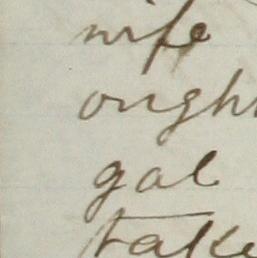 wife
ough
gal
take